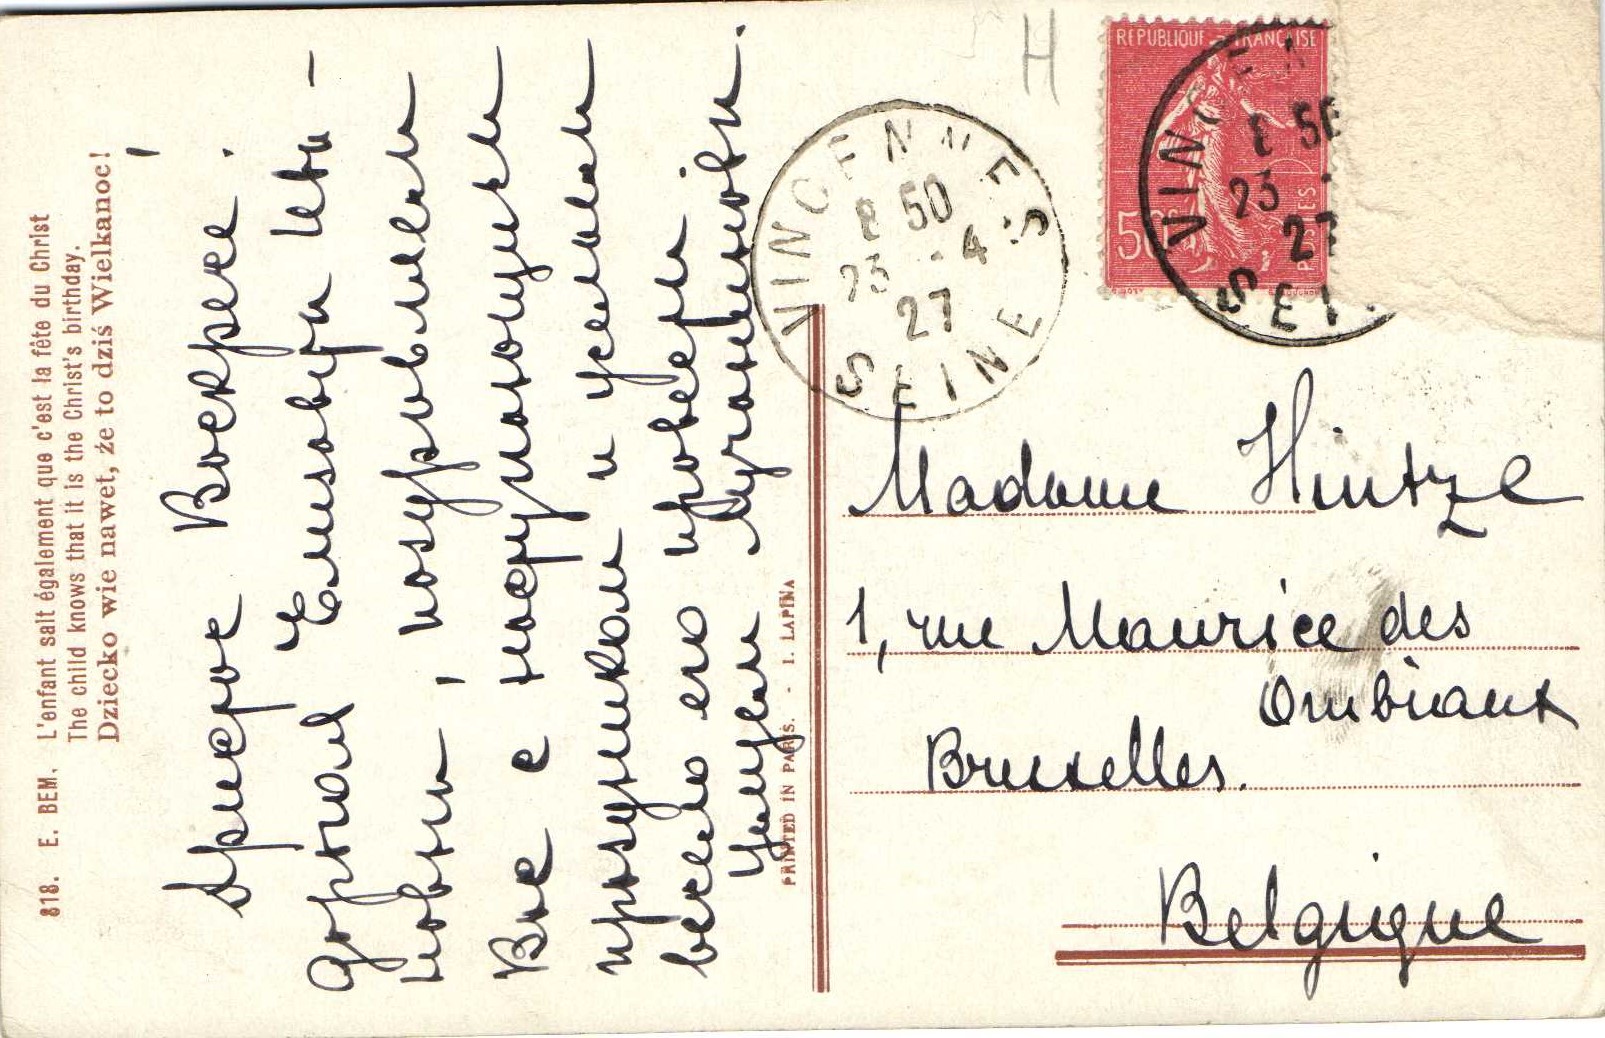 818. E. BEM. L'enfant sait également que c'est la fête du Christ
The child knows that it is the Christ's birthday.
Dziecko wie nawet, że to dziś Wielkanoc!
Христос Воскресе!
Дорогая Елизавета Ива-
новна, поздравляем
Вас с наступающим
праздником и желаем
весело его провести.
PRINTED IN PARIS. - I. LAPINA
H
REPUBLIQUE FRANÇAISE
50
POSTES
VINCENNES
8 50
23 - 4
27
SEINE
VINCEN
8 50
23
27
SEI
Madame Hintze
1, rue Maurice des
Ombiaux
Bruxelles.
Belgique